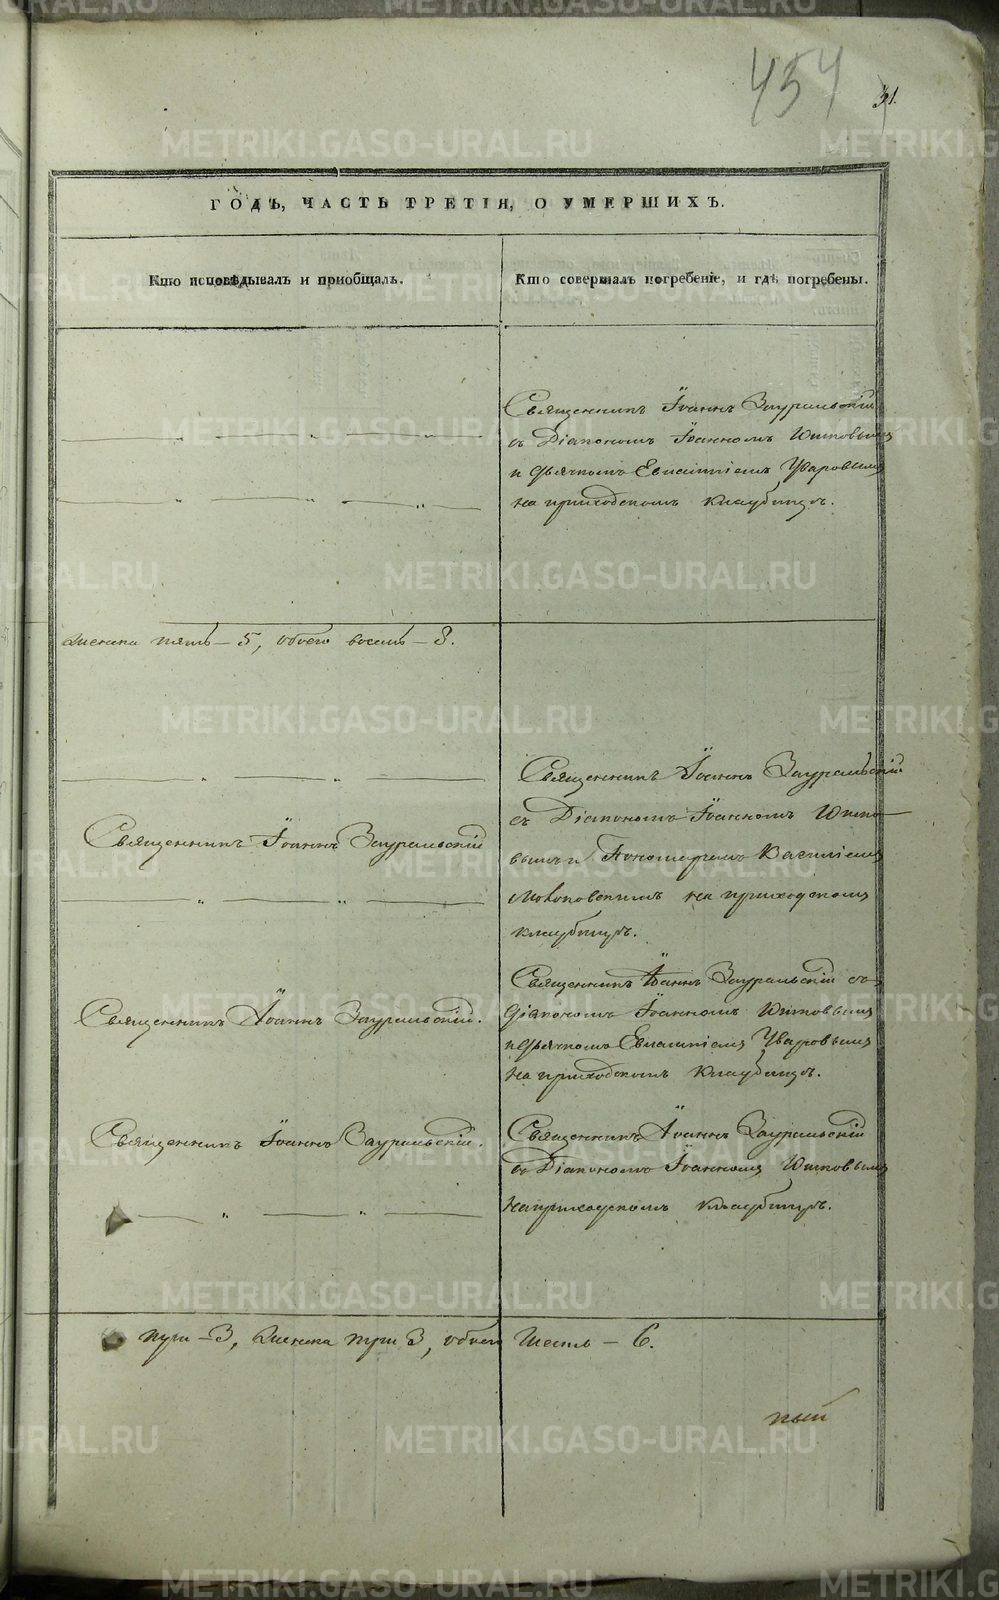 454
31.
ГОДЪ, ЧАСТЬ ТРЕТІЯ, О УМЕРШИХЪ.
Кто исповѣдывалъ и приобщалъ.
Кто совершалъ погребеніе, и гдѣ погребены.
Священникъ Іоаннъ Зауральскій
съ Діакономъ Іоанномъ
и дьячкомъ Уваровымъ
на приходскомъ кладбищѣ.
женска пять – 5, обоего восемь – 8.
Священникъ Іоаннъ Зауральскій
съ Діакономъ Іоанномъ
Священникъ Іоаннъ Зауральскій
вымъ и Пономаремъ Василіемъ
на приходскомъ
кладбищѣ.
Священникъ Іоаннъ Зауральскій съ
Священникъ Іоаннъ Зауральскій.
Діакономъ Іоанномъ
и дьячкомъ Уваровымъ
на приходскомъ кладбищѣ.
Священникъ Іоаннъ Зауральскій.
Священникъ Іоаннъ Зауральскій
съ Діакономъ Іоанномъ
на приходскомъ кладбищѣ.
три – 3, женска три 3, обоего шесть – 6.
ный
METRIKI.GASO-URAL.RU